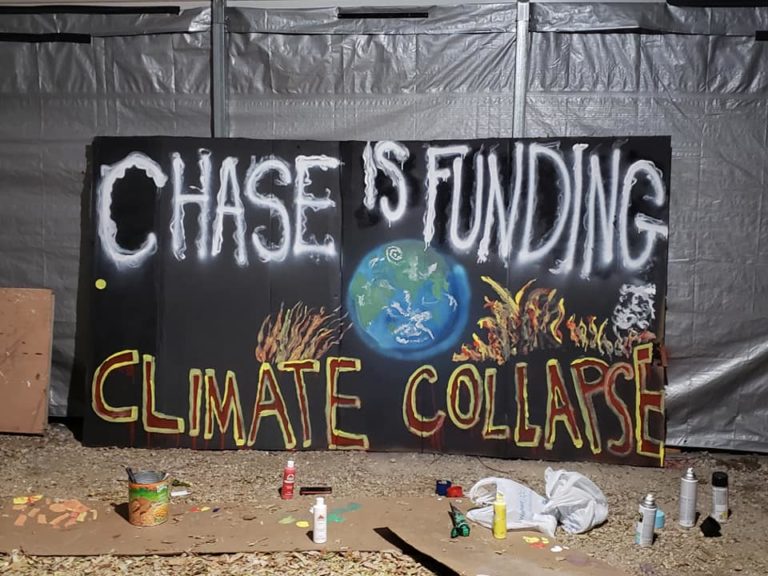 CHASE IS FUNDING
CLIMATE COLLAPSE